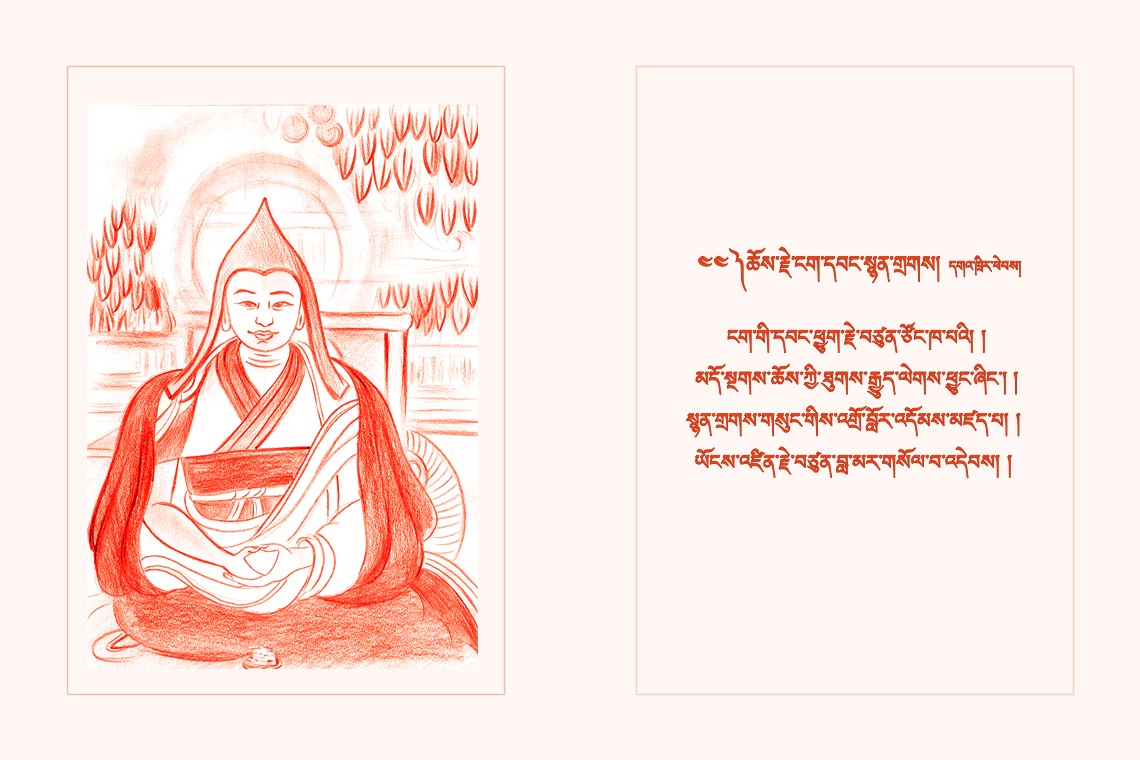 ༄༅ །ཆོས་རྗེ་ངག་དབང་སྙན་གྲགས། དགའ་ཁྲིར་ཕེབས།
ངག་གི་དབང་ཕྱུག་རྗེ་བཙུན་ཙོང་ཁ་པའི། །
མདོ་སྔགས་ཆོས་ཀྱི་ཐུགས་རྒྱུད་ལེགས་ཕྱུང་ཞིང་། །
སྙན་གྲགས་གསུང་གིས་འགྲོ་བློར་འདོམས་མཛད་པ། །
ཡོངས་འཛིན་རྗེ་བཙུན་བླ་མར་གསོལ་བ་འདེབས། །